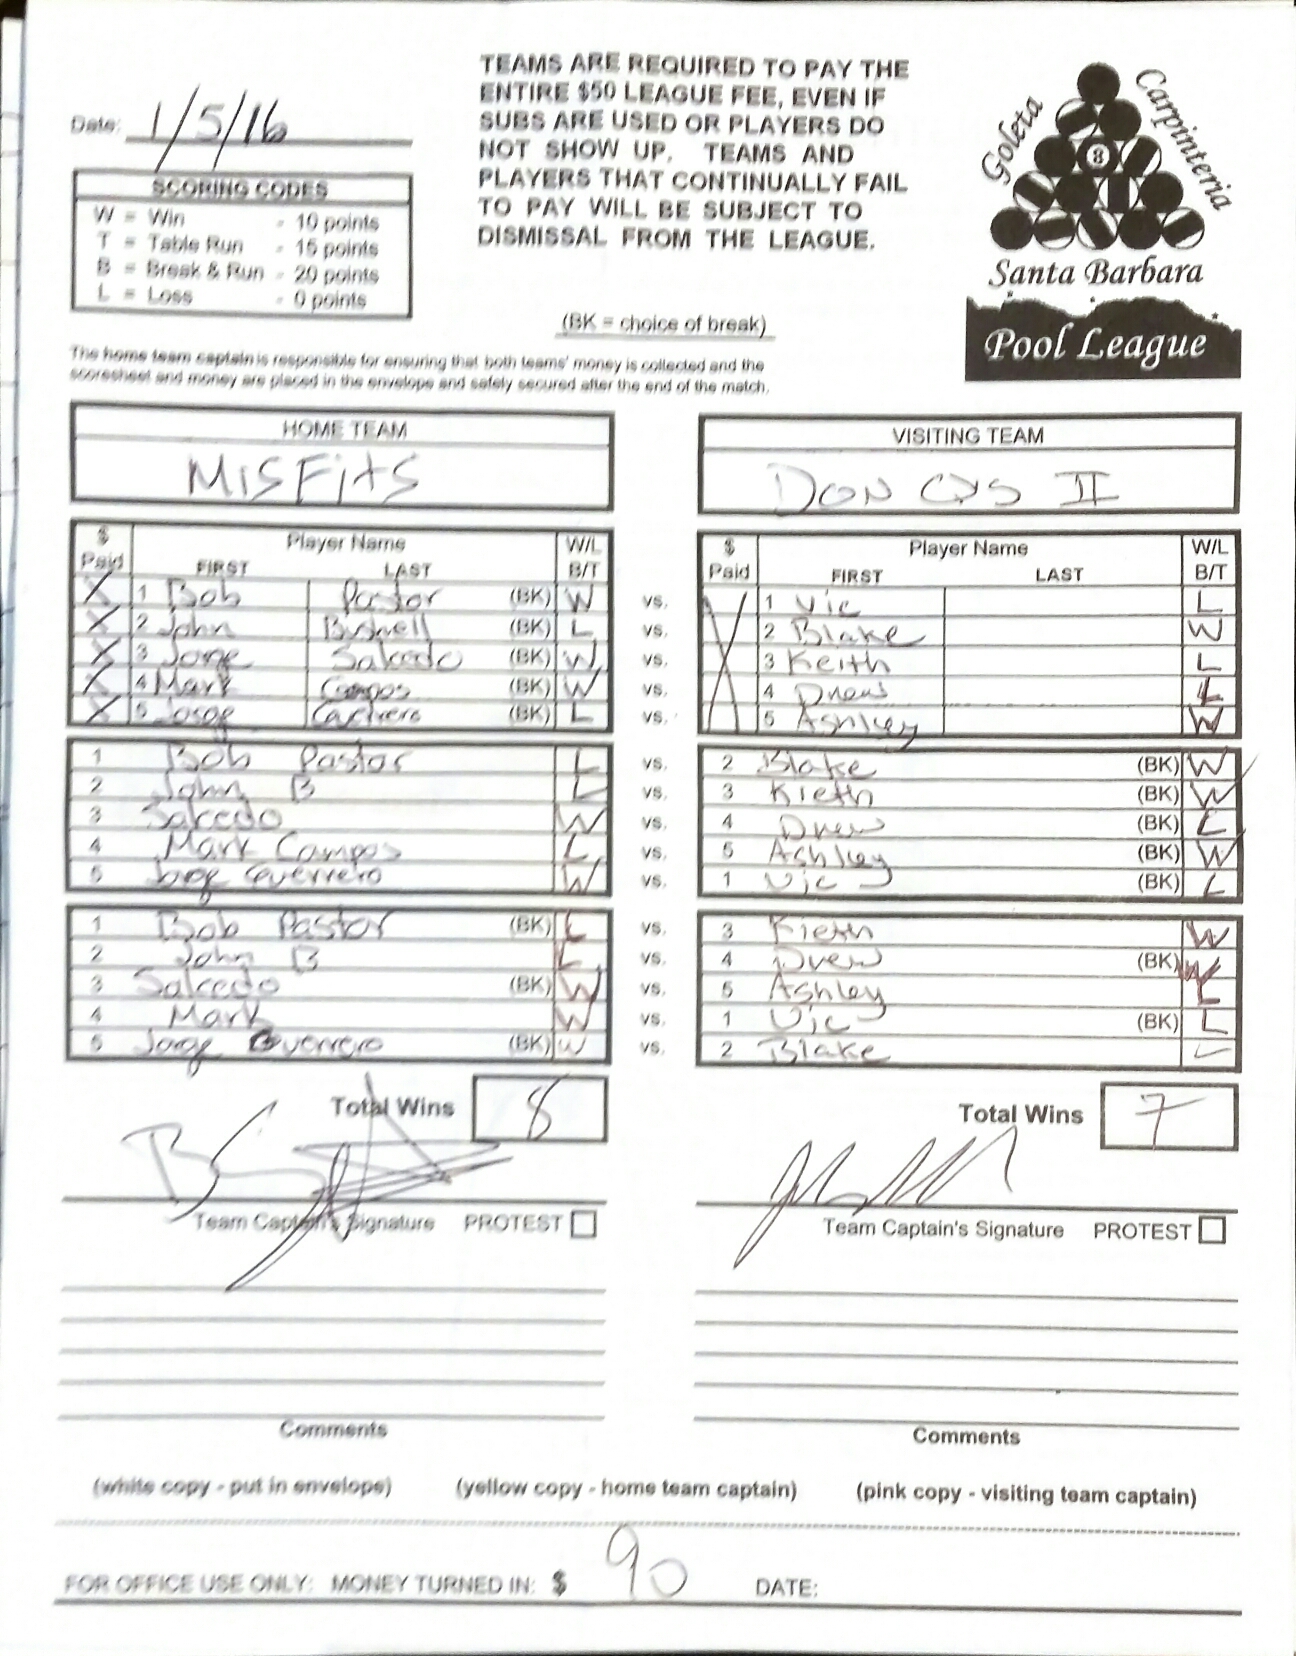 TEAMS ARE REQUIRED TO PAY THE
ENTIRE $50 LEAGUE FEE, EVEN IF
SUBS ARE USED OR PLAYERS DO
NOT SHOW UP. TEAMS AND
PLAYERS THAT CONTINUALLY FAIL
TO PAY WILL BE SUBJECT TO
DISMISSAL FROM THE LEAGUE.
Goleta
Carpinteria
8
Santa Barbara
Pool League
Date: 1/5/16
SCORING CODES
W = Win - 10 points
T = Table Run - 15 points
B = Break & Run - 20 points
L = Loss - 0 points
(BK = choice of break)
The home team captain is responsible for ensuring that both teams' money is collected and the
scoresheet and money are placed in the envelope and safely secured after the end of the match.
HOME TEAM VISITING TEAM
MISFITS DON CYS II
$ Paid Player Name FIRST LAST W/L B/T $ Paid Player Name FIRST LAST W/L B/T
X 1 Bob Pastor (BK) W vs. 1 Vic L
X 2 John Bushell (BK) L vs. 2 Blake W
X 3 Jorge Salcedo (BK) W vs. 3 Keith L
X 4 Mark Campos (BK) W vs. 4 Drew L
X 5 Jorge Guerrero (BK) L vs. 5 Ashley W
1 Bob Pastor L vs. 2 Blake (BK) W
2 John B L vs. 3 Kieth (BK) W
3 Salcedo W vs. 4 Drew (BK) L
4 Mark Campos L vs. 5 Ashley (BK) W
5 Jorge Guerrero W vs. 1 Vic (BK) L
1 Bob Pastor (BK) L vs. 3 Kieth W
2 John B L vs. 4 Drew (BK) W
3 Salcedo (BK) W vs. 5 Ashley L
4 Mark W vs. 1 Vic (BK) L
5 Jorge Guerrero (BK) W vs. 2 Blake L
Total Wins 8 Total Wins 7
Team Captain's Signature PROTEST Team Captain's Signature PROTEST
Comments Comments
(white copy - put in envelope) (yellow copy - home team captain) (pink copy - visiting team captain)
FOR OFFICE USE ONLY: MONEY TURNED IN: $ 90 DATE: